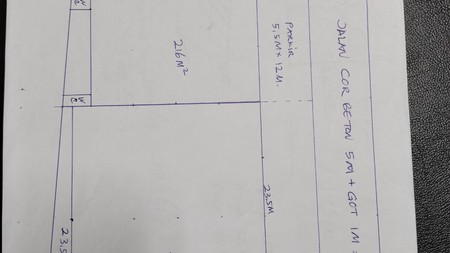 JALAN COR BETON 5M + GOT 1M =
PARKIR
5,5M x 12M.
216M²
23.5M
23.5